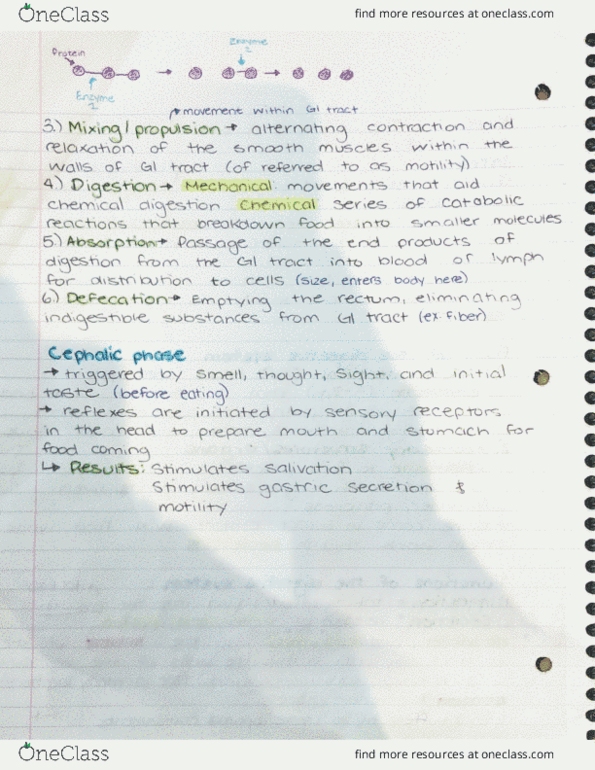 OneClass
find more resources at oneclass.com
Protein
Enzyme
2
Enzyme
1
movement within GI tract
3.) Mixing/propulsion → alternating contraction and
relaxation of the smooth muscles within the
walls of GI tract (of referred to as motility)
4.) Digestion → Mechanical movements that aid
chemical digestion Chemical series of catabolic
reactions that breakdown food into smaller molecules
5) Absorption → Passage of the end products of
digestion from the GI tract into blood or lymph
for distribution to cells (size, enters body here)
6) Defecation → Emptying the rectum, eliminating
indigestible substances from GI tract (ex. Fiber)
Cephalic phase
→ triggered by smell, thought, sight, and initial
taste (before eating)
→ reflexes are initiated by sensory receptors
in the head to prepare mouth and stomach for
food coming
↳ Results: Stimulates salivation
Stimulates gastric secretion &
motility
OneClass
find more resources at oneclass.com